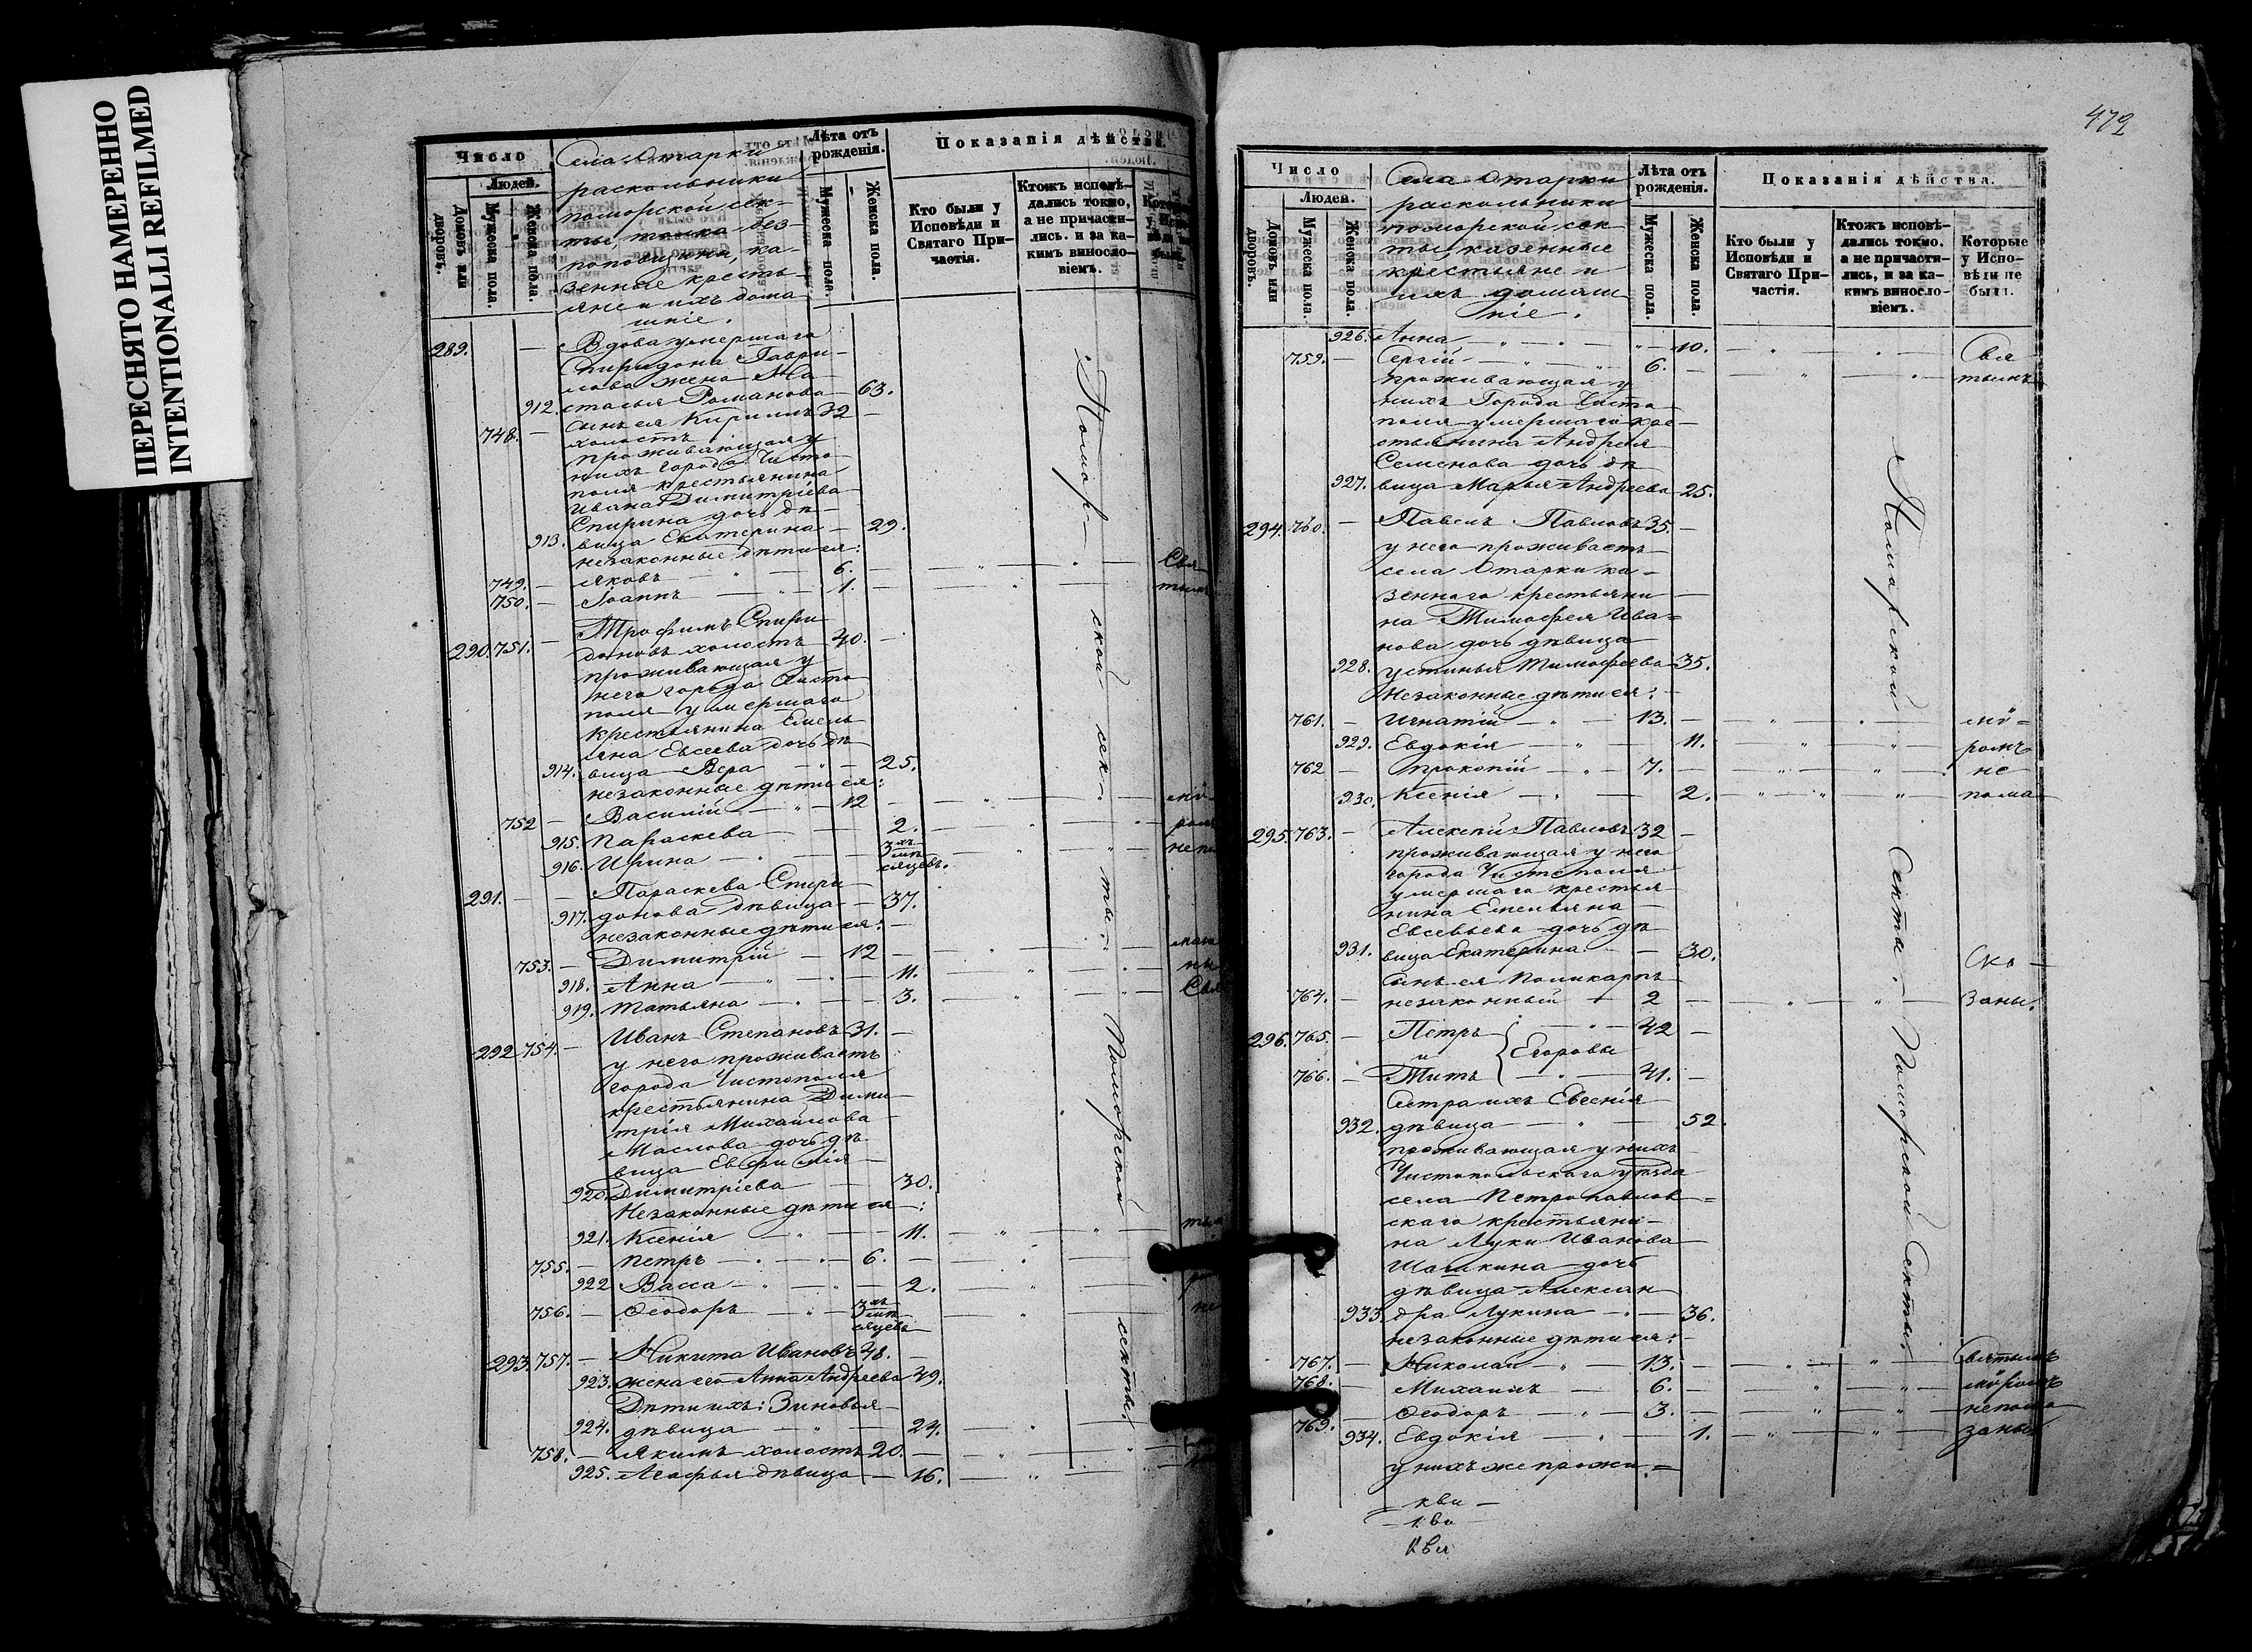 ПЕРЕСНЯТО НАМЕРЕННО
INTENTIONALLI REFILMED
Число
Людей.
Домовъ или дворовъ.
Мужеска пола.
Женска пола.
Села Отарки
раскольники
поморской сек-
ты, толка без-
поповщины, ка-
зенные кресть-
яне и ихъ дома
шніе.
Лѣта отъ рожденія.
Мужеска пола.
Женска пола.
Показанія дѣйства.
Кто были у Исповѣди и Святаго При-частія.
Ктожъ исповѣ-дались токмо, а не причасти-лись. и за ка-кимъ виносло-віемъ.
289. — Вдова умершаго
Спиридона Гаври-
лова жена На-
912. стасья Романова 63.
748. — сынъ ея Кириллъ 32 —
холостъ
проживающая у
нихъ города Чисто
поля крестьянина
Ивана Димитріева
Спирина дочь дѣ-
913. вица Екатерина — 29.
незаконные дѣти ея:
749. — Яковъ — 6. — Свя
750. — Іоаннъ — 1. — тымъ
290. 751. — Трофимъ Спири
доновъ холостъ 40. —
проживающая у
него города Чисто
поля умершаго
крестьянина Емель
яна Евсеева дочь дѣ
914. вица Вера — 25.
незаконные дѣти ея:
752 — Василій — 12 — мѵ-
915. Параскева — 2. — ромъ
916. Ирина — 3хъ мѣ сяцевъ. непо
291. — Параскева Спири
917. донова дѣвица — 37.
незаконные дѣти ея: —
753. — Димитрій — 12 — маза
918. Анна — 11. — ны
919. Татьяна — 3. — Свя
292 754. — Иванъ Степановъ 31. —
у него проживаетъ
города Чистополя
крестьянина Дими
трія Михайлова
Маслова дочь дѣ
вица Евфимія
920. Димитріева — 30.
Незаконные дѣти ея:
921. Ксенія — 11. — тым
755. — Петръ — 6. —
922 Васса — 2. —
756. — Ѳеодоръ — 3хъ мѣ сяцевъ — не
293. 757. — Никита Ивановъ 48. —
923. жена его Анна Андреева 49.
Дѣти ихъ: Зиновья
924. дѣвица — 24. —
758. — Якимъ холостъ 20. —
925. Агафья дѣвица — 16. —
Помор-
ской сек-
ты.
Поморской
секты.
472
Число
Людей.
Домовъ или дворовъ.
Мужеска пола.
Женска пола.
Села Отарки
раскольники
поморской сек-
ты, казенные
крестьяне и
ихъ домаш
ніе.
Лѣта отъ рожденія.
Мужеска пола.
Женска пола.
Показанія дѣйства.
Кто были у Исповѣди и Святаго При-частія.
Ктожъ исповѣ-дались токмо. а не причасти-лись, и за ка-кимъ виносло-віемъ.
Которые у Испо-вѣди не были.
926. Анна — 10. — Свя
759. — Сергій — 6. — тымъ
проживающая у
нихъ Города Чисто
поля умершаго кре-
стьянина Андрея
Семенова дочь дѣ
927. вица Марья Андреева 25.
294. 760. — Павелъ Павловъ 35. —
у него проживаетъ
села Отарки ка-
зеннаго крестьяни
на Тимофея Ива-
нова дочь дѣвица
928. Устинья Тимофеева 35.
Незаконные дѣти ея: —
761. — Игнатій — 13. — мѵ-
929. Евдокія — 11. — ромъ
762 — Прокопій — 7. — не
930. Ксенія — 2. — пома
295. 763. — Алексѣй Павловъ 32 —
проживающая у него
города Чистополя
умершаго крестья
нина Емельяна
Евсевьева дочь дѣ
931. вица Екатерина — 30.
сынъ ея Поликарпъ
764. — незаконный — 2 — заны.
296. 765. — Петръ — 42 —
и Егоровы
766. — Титъ — 41. —
Сестра ихъ Евсенія
932. дѣвица — 52.
проживающая у нихъ
Чистопольскаго уѣзда
села Петропавлов-
скаго крестьяни-
на Луки Иванова
Шашкина дочь
дѣвица Алексан
933. дра Лукина — 36.
незаконные дѣти ея: —
767. — Николай — 13. — Святымъ
768. — Михаилъ — 6. — мѵромъ
769. — Ѳеодоръ — 3. — непома
934. Евдокія — 1. — заны
у нихъ же прожи-
Поморской
Секты.
Поморской Секты.